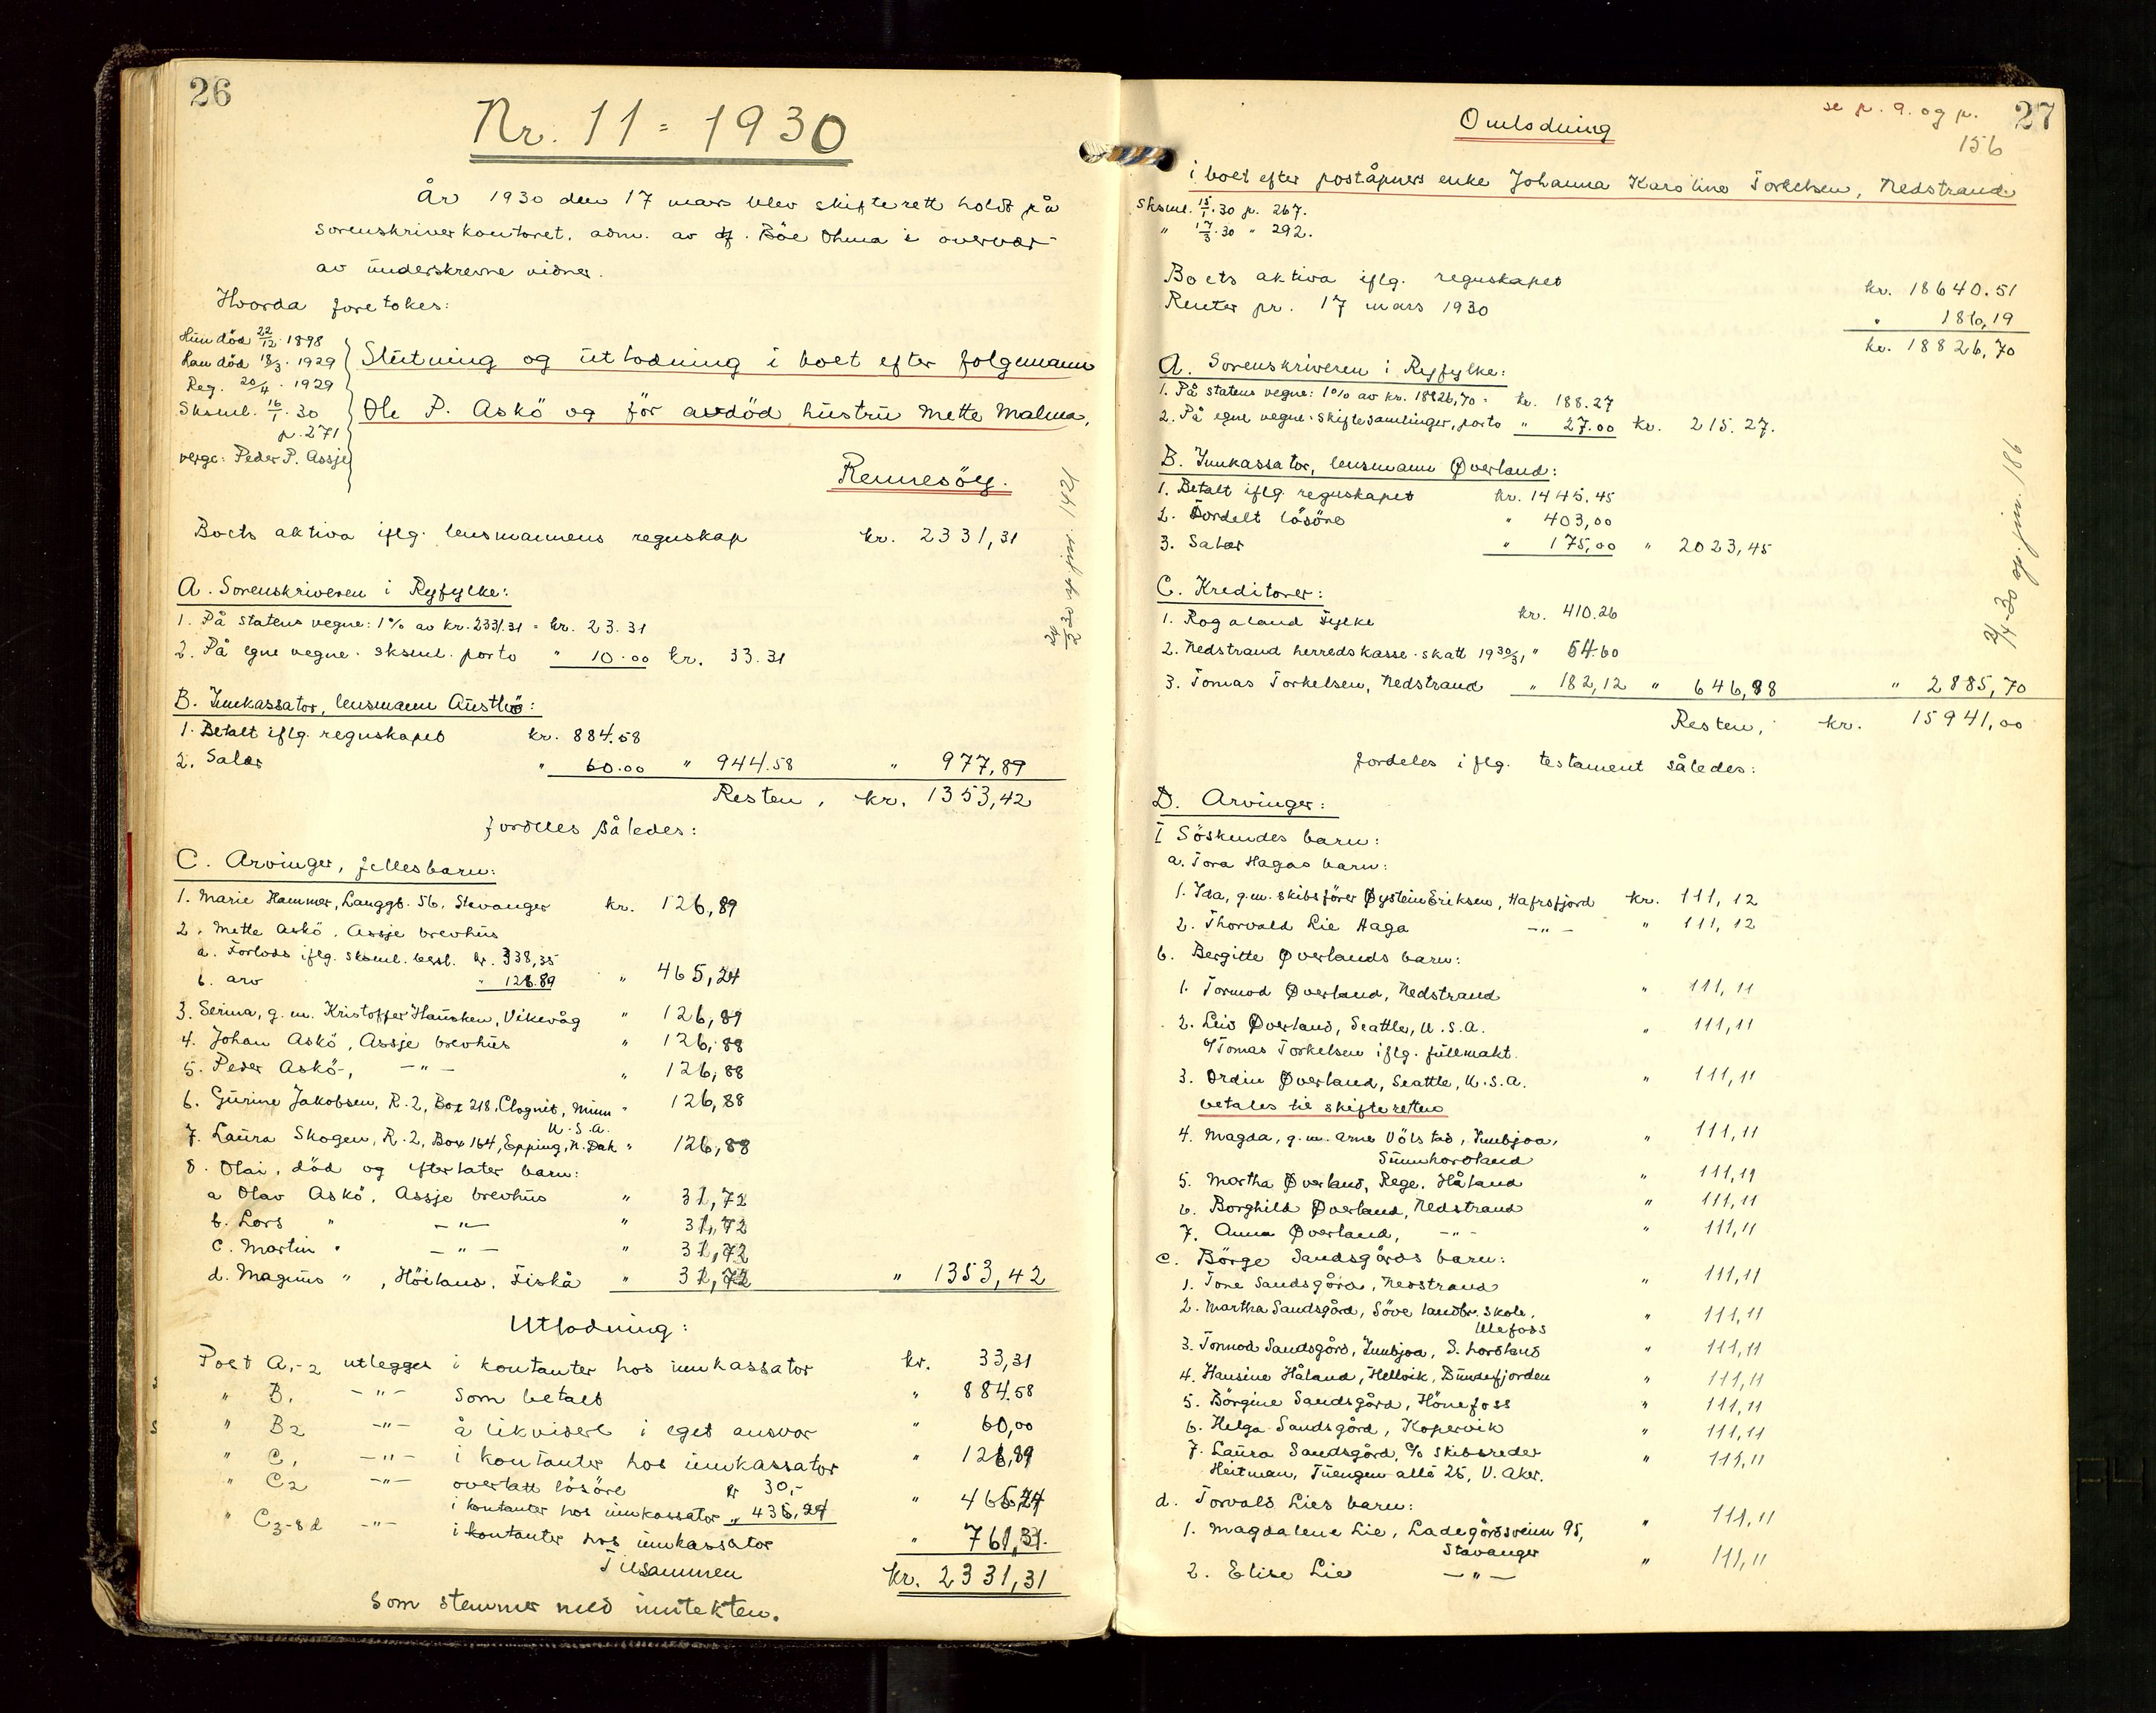 26
Nr. 11 = 1930
År 1930 den 17 mars blev skifterett holdt på
sorenskriverkontoret. adm. av df. Böe Ohma i overvær
av underskrevne vidner.
Hvorda foretokes:
Hun död 22/12. 1898
Han död 18/3. 1929
Reg. 20/4. 1929
Sksml. 16/1. 30
p. 271
verge: Peder P. Assje
Slutning og utlodning i boet efter folgemann
Ole P. Askö og för avdöd hustru Mette Malma,
Rennesöy.
Boets aktiva iflg. lensmannens regnskap kr. 2331,31
A. Sorenskriveren i Ryfylke:
1. På statens vegne: 1% av kr. 2331.31 = kr. 23.31
2. På egne vegne. sksml. porto " 10.00 kr. 33.31
B. Innkassator, lensmann Austbö:
1. Betalt iflg. regnskapet kr. 884.58
2. Salær " 60.00 " 944.58 " 977,89
Resten, kr. 1353,42
fordeles således:
C. Arvinger, fellesbarn:
1. Marie Hammer, Langgt. 56, Stavanger kr. 126,89
2. Mette Askö, Assje brevhus
a. Forlods iflg. sksml. besl. kr. 338,35
b. arv " 126.89 " 465,24
3. Serina, g.m. Kristoffer Hausken, Vikevåg " 126,89
4. Johan Askö, Assje brevhus " 126,88
5. Peder Askö, —"— " 126,88
6. Gurine Jakobsen, R. 2, Box 218, Cloquet, Minn " 126,88
U.S.A.
7. Laura Skogen, R. 2, Box 164, Epping, N. Dak " 126,88
8. Olai, död og efterlater barn:
a Olav Askö, Assje brevhus " 31,72
b. Lars " —"— " 31,72
c. Martin " —"— " 31,72
d. Magnus ", Höiland, Fiskå " 31,72 " 1353,42
Utlodning:
Post A,-2 utlegges i kontanter hos innkassator kr. 33,31
" B, —"— som betalt " 884.58
" B2 —"— å likvidere i eget ansvar " 60,00
" C, —"— i kontanter hos innkassator " 126,89
" C2 —"— overtatt lösöre kr 30,-
i kontanter hos innkassator " 435,24 " 465,24
" C3-8d —"— i kontanter hos innkassator " 761,31.
Tilsammen kr. 2331,31
som stemmer med inntekten.
27
se p. 9. og p.
156
Omlodning
i boet efter poståpners enke Johanna Karoline Torkelsen, Nedstrand
Sksml. 15/1. 30 p. 267.
" 17/3. 30 " 292.
Boets aktiva iflg. regnskapet kr. 18640.51
Renter pr. 17 mars 1930 " 186,19
kr. 18826,70
A. Sorenskriveren i Ryfylke:
1. På statens vegne: 1% av kr. 18826,70 = kr. 188.27
2. På egne vegne. skiftesamlinger, porto " 27.00 kr. 215.27.
B. Innkassator, lensmann Øverland:
1. Betalt iflg. regnskapet kr. 1445.45
2. Fordelt lösöre " 403,00
3. Salær " 175,00 " 2023,45
C. Kreditorer:
1. Rogaland Fylke kr. 410.26
2. Nedstrand herredskasse. skatt 1930/31 " 54.60
3. Tomas Torkelsen, Nedstrand " 182,12 " 646,98 " 2885,70
Resten, kr. 15941,00
fordeles iflg. testament således:
D. Arvinger:
I Söskendes barn:
a. Tora Hagas barn:
1. Ida, g.m. skibsförer Øystein Eriksen, Hafrsfjord kr. 111,12
2. Thorvald Lie Haga —"— " 111,12
b. Bergitte Øverlands barn:
1. Tormod Øverland, Nedstrand " 111,11
2. Leiv Øverland, Seattle, U.S.A. " 111,11
c/o Tomas Torkelsen iflg. fullmakt.
3. Ordin Øverland, Seattle, U.S.A. " 111,11
betales til skifteretten
4. Magda, g.m. Arne Völstad, Innbjoa, " 111,11
Sunnhordland
5. Martha Øverland, Rege, Håland " 111,11
6. Borghild Øverland, Nedstrand " 111,11
7. Anna Øverland, —"— " 111,11
c. Börge Sandsgårds barn:
1. Tone Sandsgård, Nedstrand " 111,11
2. Martha Sandsgård, Söve landbr. skole, " 111,11
Ulefoss
3. Tormod Sandsgård, Innbjoa, S. hordland " 111,11
4. Hansine Håland, Hellvik, Bundefjorden " 111,11
5. Börgine Sandsgård, Hönefoss " 111,11
6. Helga Sandsgård, Kopervik " 111,11
7. Laura Sandsgård, c/o skibsreder " 111,11
Heitman, Tuengen allé 25, V. Aker.
d. Torvald Lies barn:
1. Magdalene Lie, Ladegårdsveien 95, " 111,11
Stavanger
2. Elise Lie —"— " 111,11